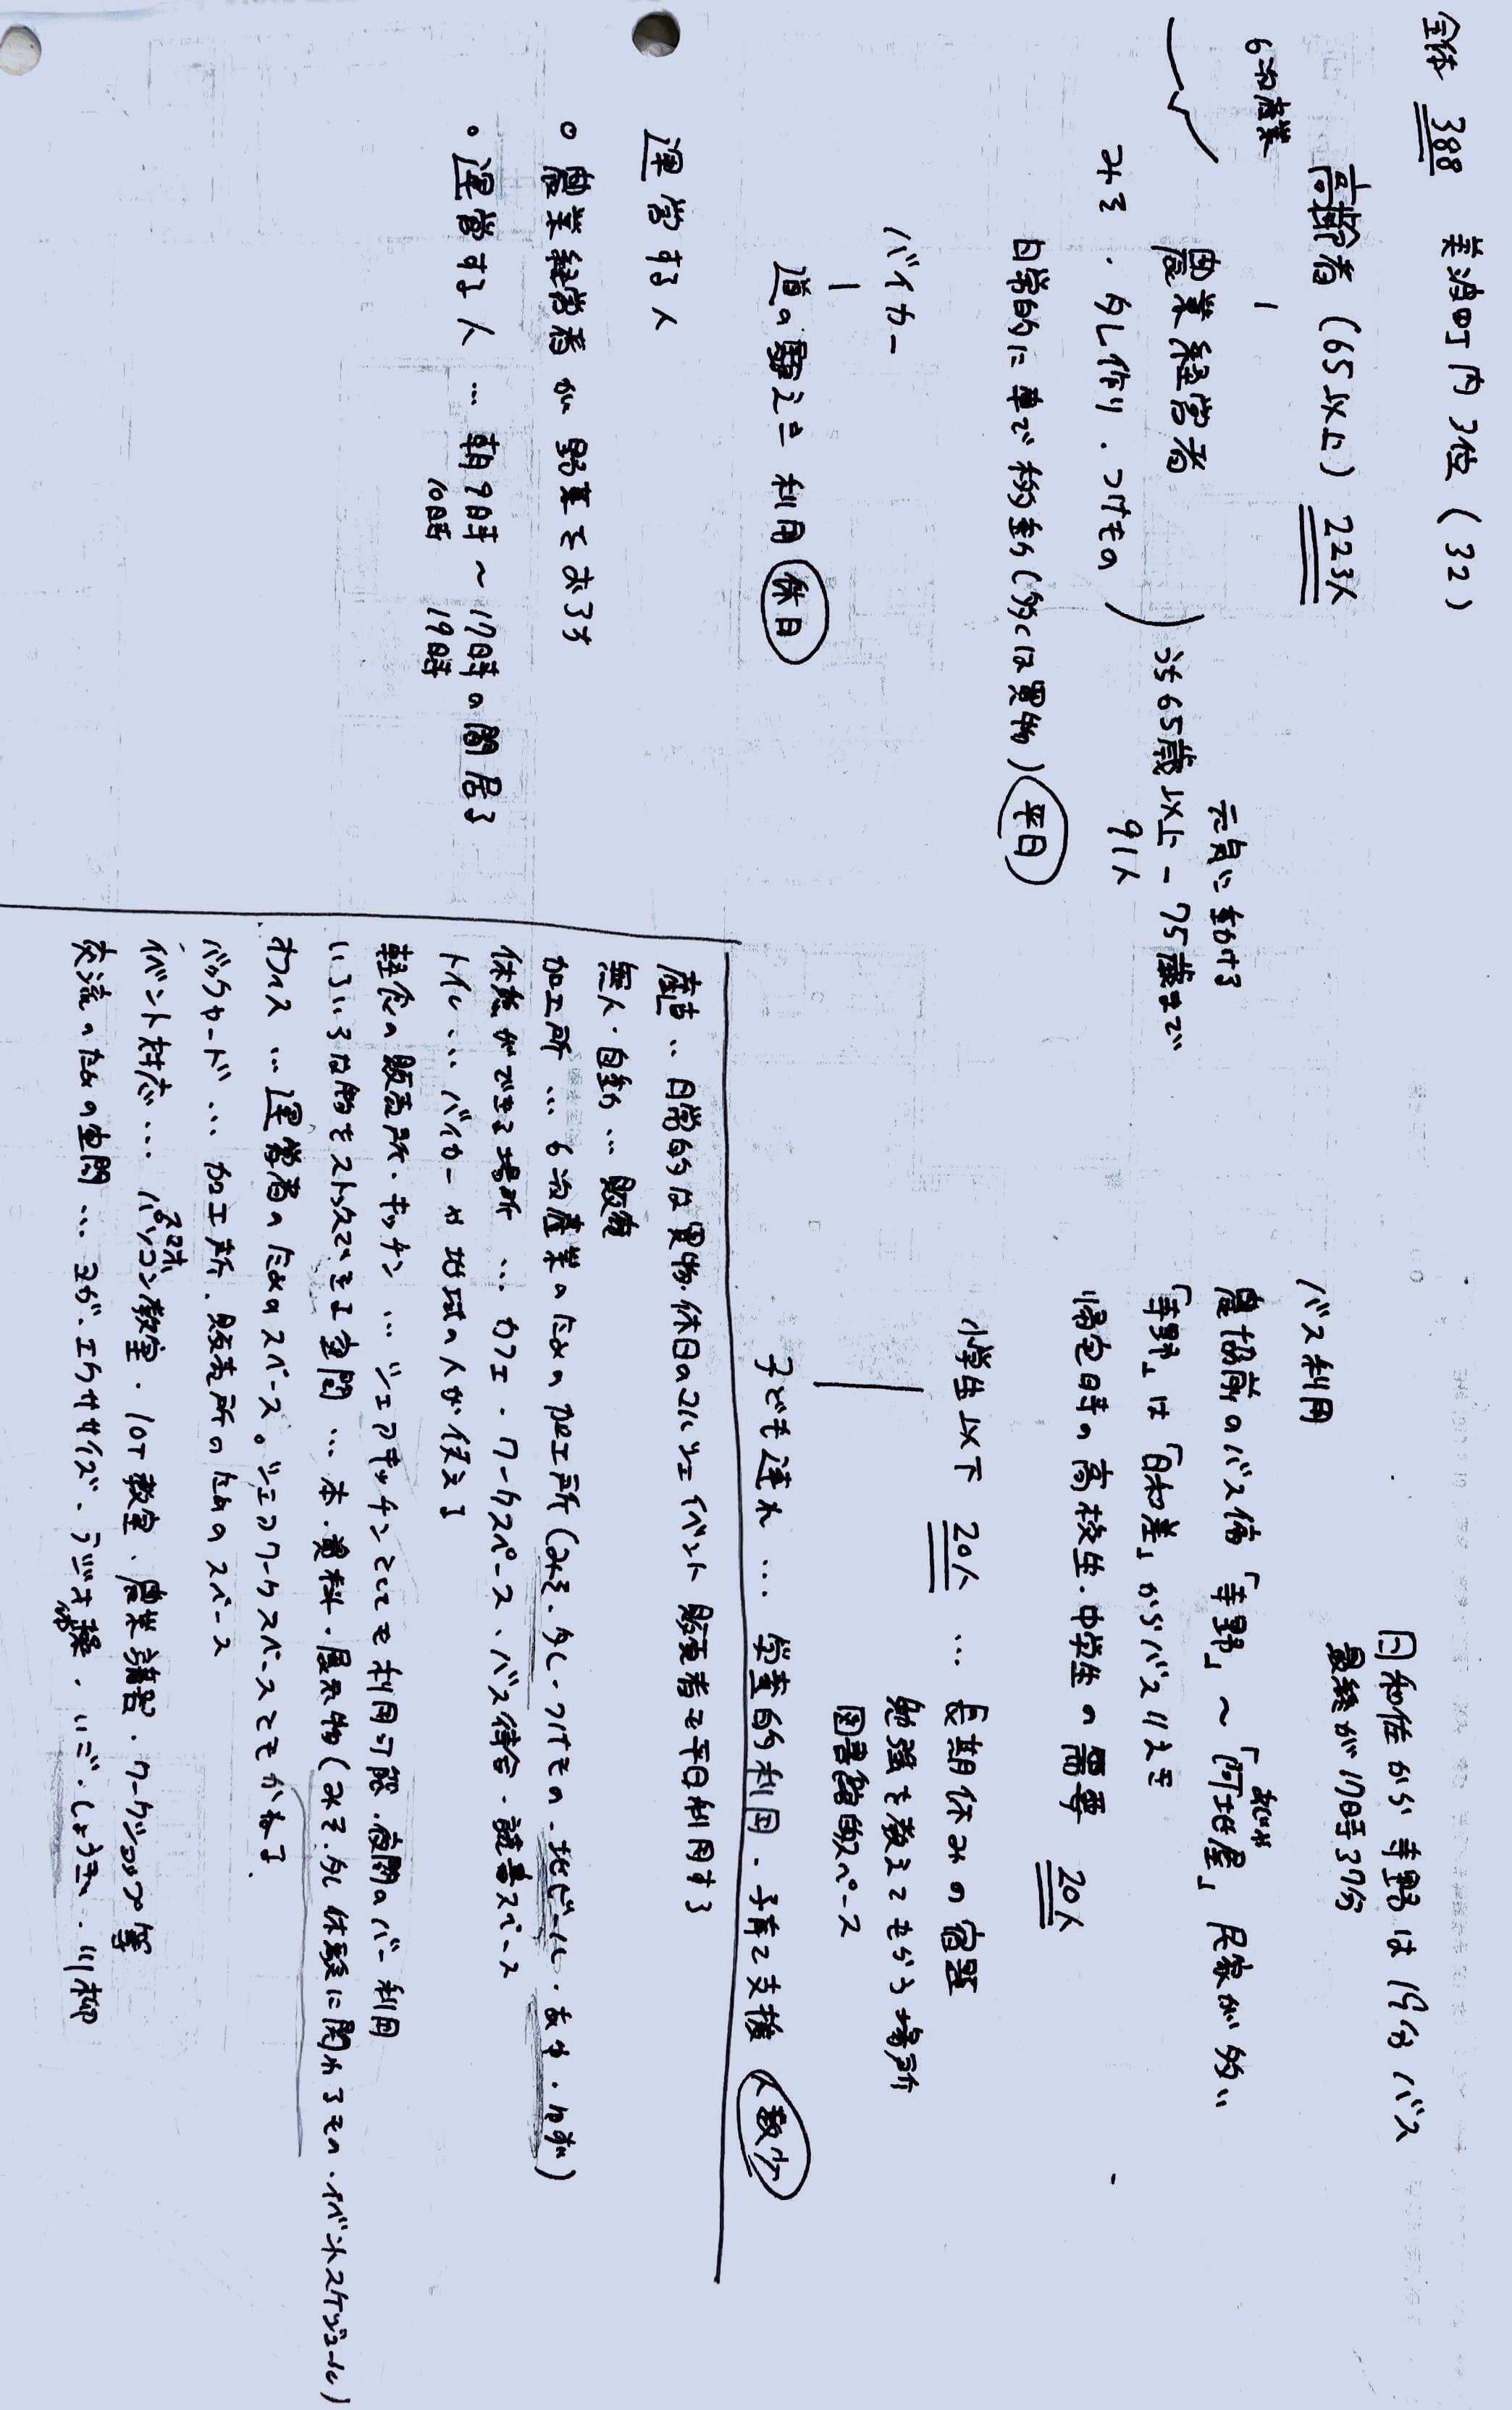 全体 388 美波町内 7位 (32)
高齢者 (65以上) 223人
6次産業
農業経営者
みそ・梅干し作り・つけもの
元気に動ける
65歳以上-75歳まで
91人
日常的に車で移動(多くは買物) 平日
バイカー
道の駅として利用 休日
運営する人
農業経営者が野菜を
運営する人 … 朝9時〜17時の間居る
10時 19時
日和佐から寺野は19分 バス
最終が17時37分
バス利用
農協前のバス停「寺野」〜「阿地屋」民家が多い
「寺野」は「日和差」からバス
帰宅時の高校生・中学生の需要 20人
小学生以下 20人 … 長期休みの宿題
勉強を教えてもらう場所
図書館的スペース
子ども連れ … 学童的利用・子育て支援 人数少
産直 … 日常的な買物・休日のマルシェイベント 販売者も平日利用する
無人・自動 … 販売
加工所 … 6次産業のための加工所(みそ・つけもの・地ビール)
休憩ができる場所 … カフェ・ワークスペース、バス待合・読書スペース
トイレ … バイカーや地域の人が使える
軽食の販売所・キッチン … シェアキッチンとしても利用可能・夜間のバー利用
いろいろな物をストックできる空間 … 本・資料・展示物(みそ・体験に関するもの・イベントスケジュール)
オフィス … 運営者のためのスペース。シェアワークスペースともかねる
バックヤード … 加工所・販売所のためのスペース
イベント対応 … パソコン教室・IoT教室・農業講習・ワークショップ等
交流のための空間 … ヨガ・エクササイズ・ラジオ体操・いご・しょうぎ・川柳